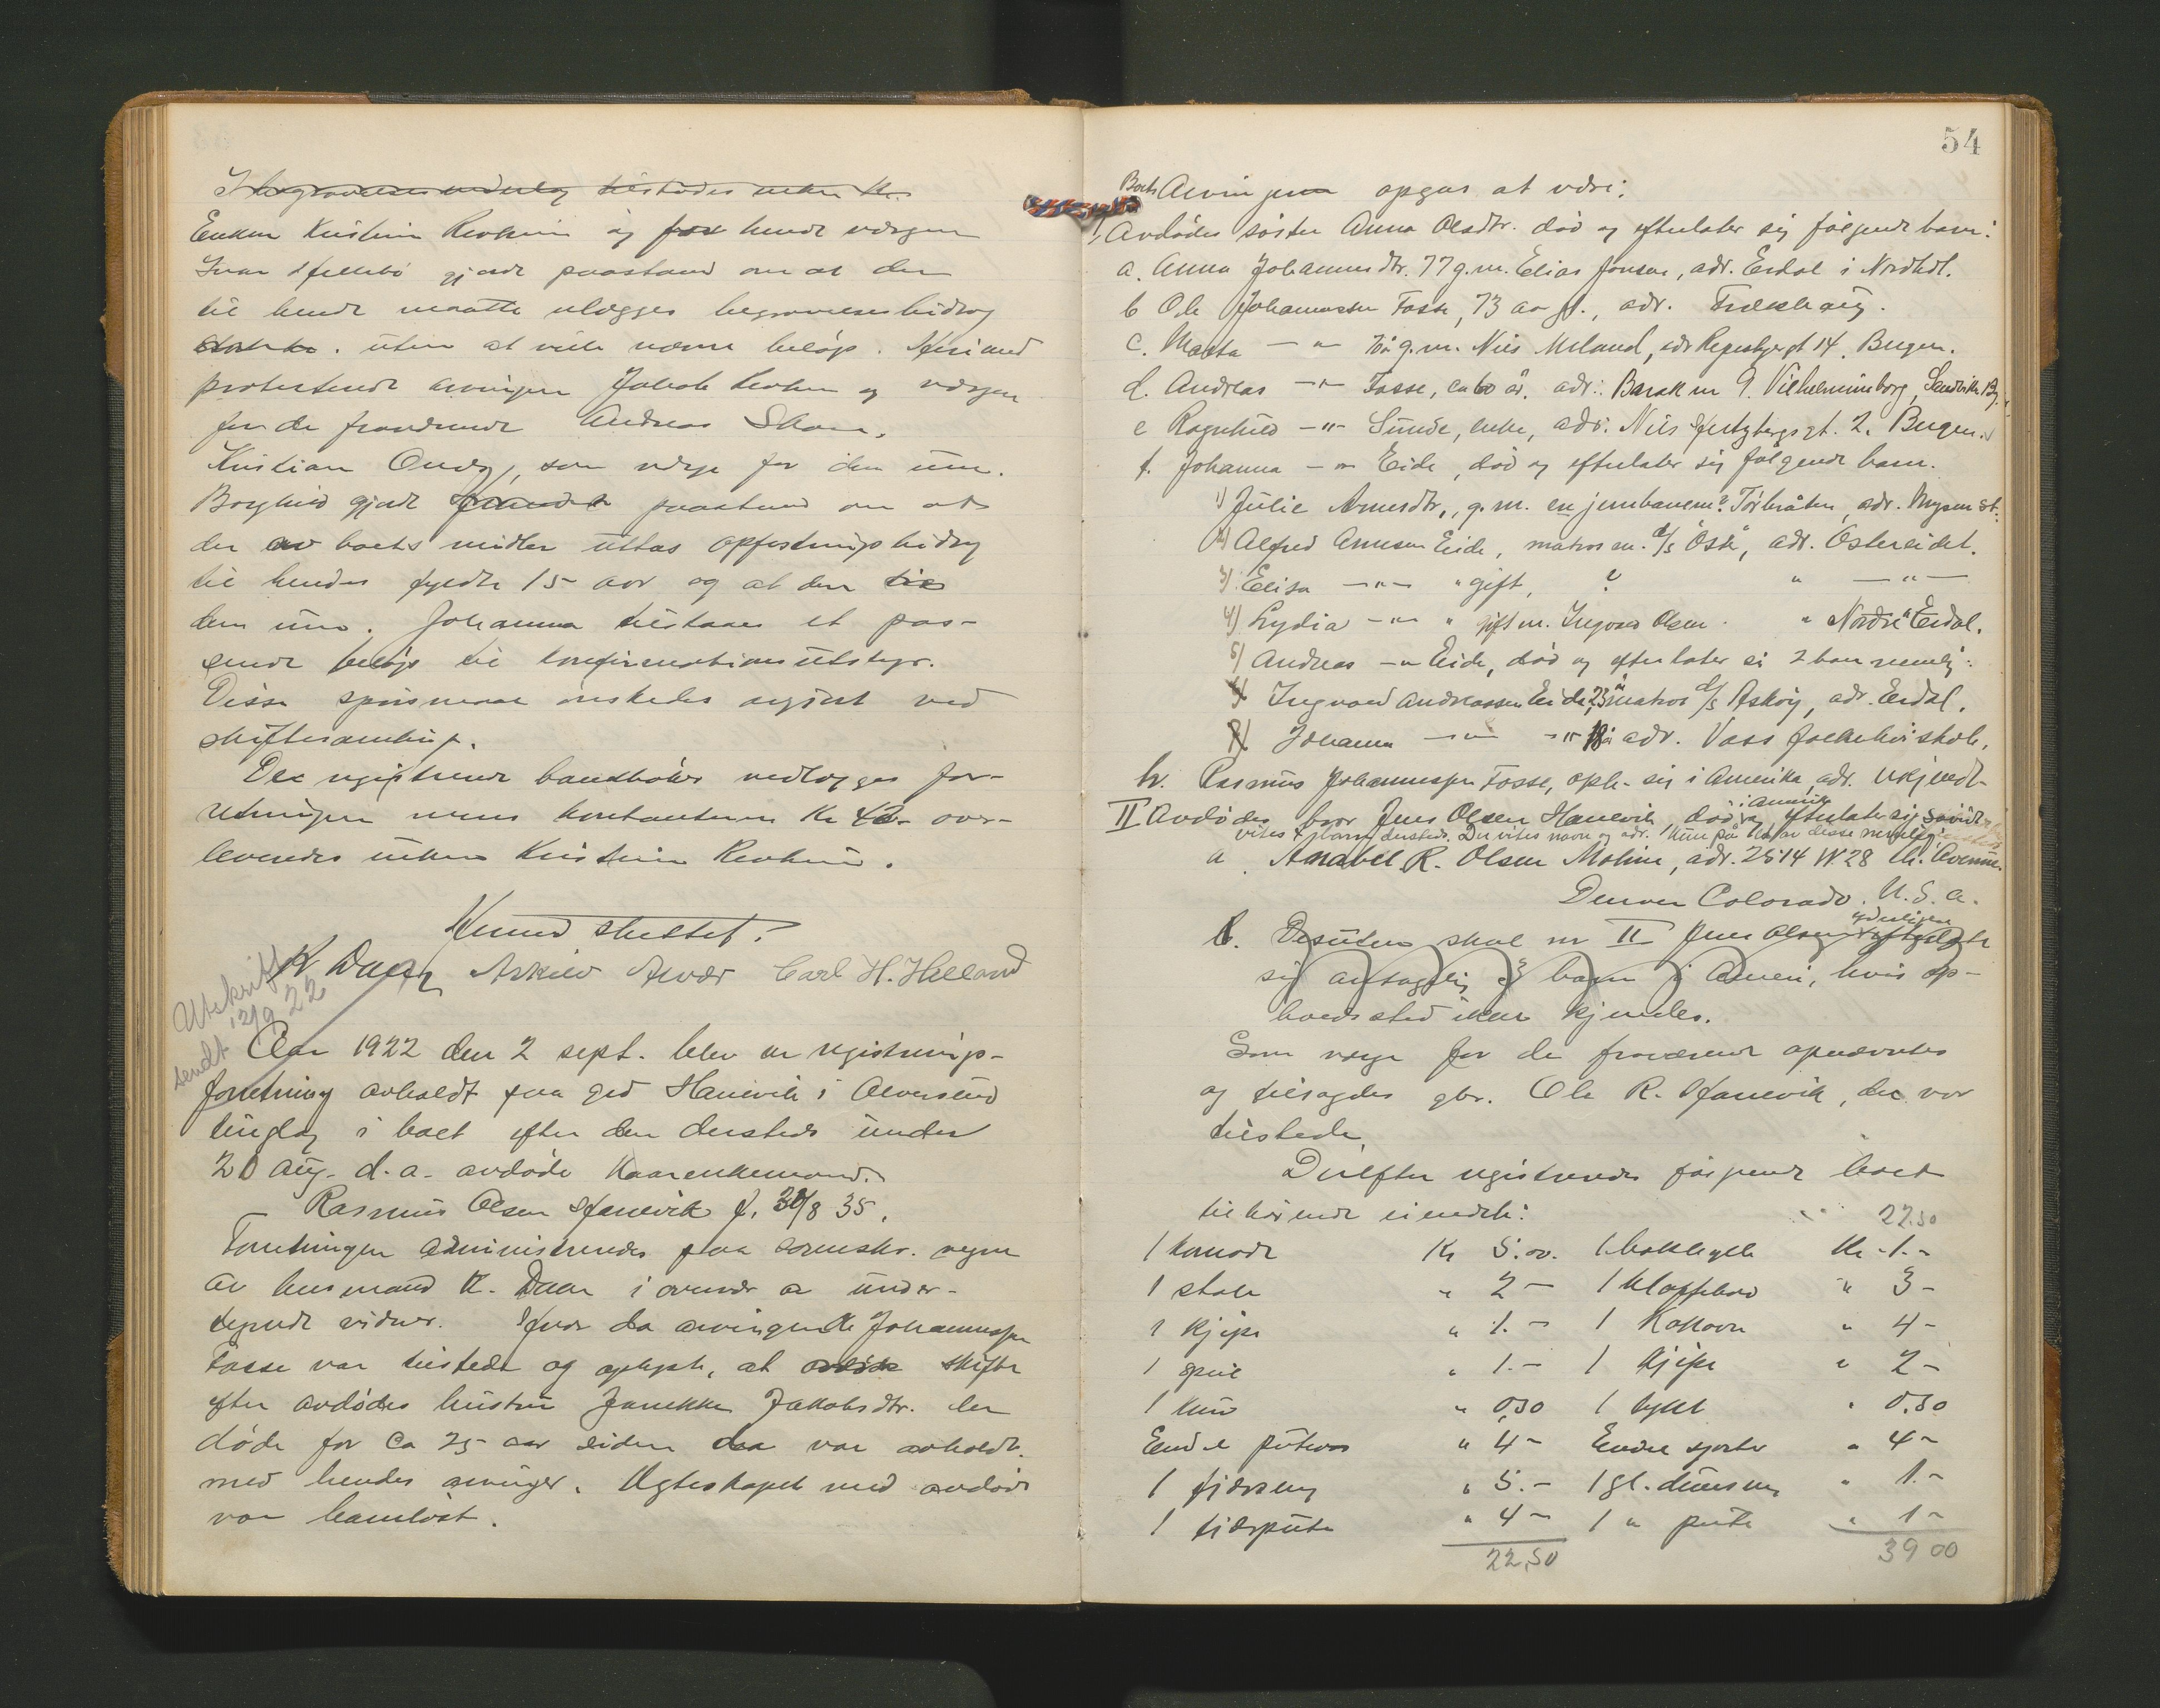 Enken Kristine Revheim og for hende værgen
Ivar Hillebø gjorde paastand om at der
til hende maatte utlægges begravelsesbidrag
uten at ville nævne beløp. Herimod
protesterede arvingen Jakob Revheim og værgen
for de fraværende Andreas Skare.
Kristian som værge for den um.
Borghild gjorde paastand om at
der av boets midler uttas opfostringsbidrag
til hendes fyldte 15 aar og at den
den um. Johanna tilstaaes et pas-
sende beløp til konfirmationsutstyr.
Disse spørsmaal ønskedes avgjort ved
skiftesamling.
De registrerede bankbøker vedlægges for-
retningen mens kontanterne Kr 42.- over-
leveredes enken Kristine Revheim.
Hermed sluttet.
K Daae Askild Alvær Carl H. Helland
Utskrift
sendt 12/9 22
Aar 1922 den 2 sept. blev en registrerings-
forretning avholdt paa grd Hanevik i Alversund
tinglag i boet efter den dersteds under
20 aug. d.a. avdøde kaarenkemand
Rasmus Olsen Hanevik f. 30/8 35.
Forretningen administreredes paa sorenskr. vegne
av lensmand K. Daae i overvær av under-
tegnede vidner. Hvor da arvingen Ole Johannessen
Fosse var tilstede og oplyste, at skifte
efter avdødes hustru Janikke Jakobsdtr. der
døde for ca 25 aar siden var avholdt
med hendes arvinger. Ægteskapet med avdøde
var barnløst.
54
Boets Arvinger opgaves at være:
I Avdødes søster Anna Olsdtr. død og efterlater sig følgende barn:
a. Anna Johannesdtr. 77 g.m. Elias Jonsen, adr. Eidal i Nordhdl.
b Ole Johannessen Fosse, 73 aar gl., adr. Frekhaug.
c. Marta —"— g.m. Nils Meland, adr 14, Bergen.
d. Andreas —"— Fosse, ca 60 år, adr: Barak nr 9. Vilhelminborg, Sandviken Bg.
e Ragnhild —"— Sunde, enke, adr. Nils Hertzbergs gt. 2. Bergen.
f. Johanna —"— Eide, død og efterlater sig følgende barn.
1) Julie Arnesdtr., g.m. en jernbanem? adr. Mysen st.
2) Alfred Arnesen Eide, matros m. d/s Oster, adr. Ostereidet.
3) Elisa —"— " gift, ? " —"—
4) Lydia —"— " gift m. Ingvald Olsen. " Nordre Eidal.
5) Andreas —"— Eide, død og efterlater si 2 barn nemlig:
Ingvald Andreassen Eide, 23 å matros d/s Askøy, adr. Eidal.
Johanna —"— —"— 18 å adr. Voss folkehøiskole.
h. Rasmus Johannessen Fosse, oph. sig i Amerika, adr. ukjendt.
II Avdødes bror Jens Olsen Hanevik, død i Amerika og efterlater sig såvidt
vites 4 barn dersteds. Der vites navn og adr. kun på en av disse nemlig:
a. Anabel R. Olsen Moline, adr. 2514 W. 28 th. Avenue.
Denver Colorado. U.S.A.
b. Desuten skal nr II Jens Olsen yderligere efterlate
sig antagelig 3 barn i Ameri, hvis op-
holdssted ikke kjendes.
Som værge for de fraværende opnævntes
og tilsagdes gbr. Ole R. Hanevik, der var
tilstede.
Derefter registreredes følgende boet
tilhørende eiendele:
22.50
1 komode Kr 5.00. 1 bokhylle Kr. 1.-
1 stole " 2 — 1 klaffebord " 3 -
1 kjipe " 1. — 1 Kokovn " 4 -
1 speil " 1. — 1 kjipe " 2 -
1 " 0,50 1 lykt " 0.50
Endel putevar " 4 - Endel " 4 -
1 fjærseng " 5. - 1 gl. " 1. -
1 fjærpute " 4 - 1 " pute " 1 -
22,50 39 00